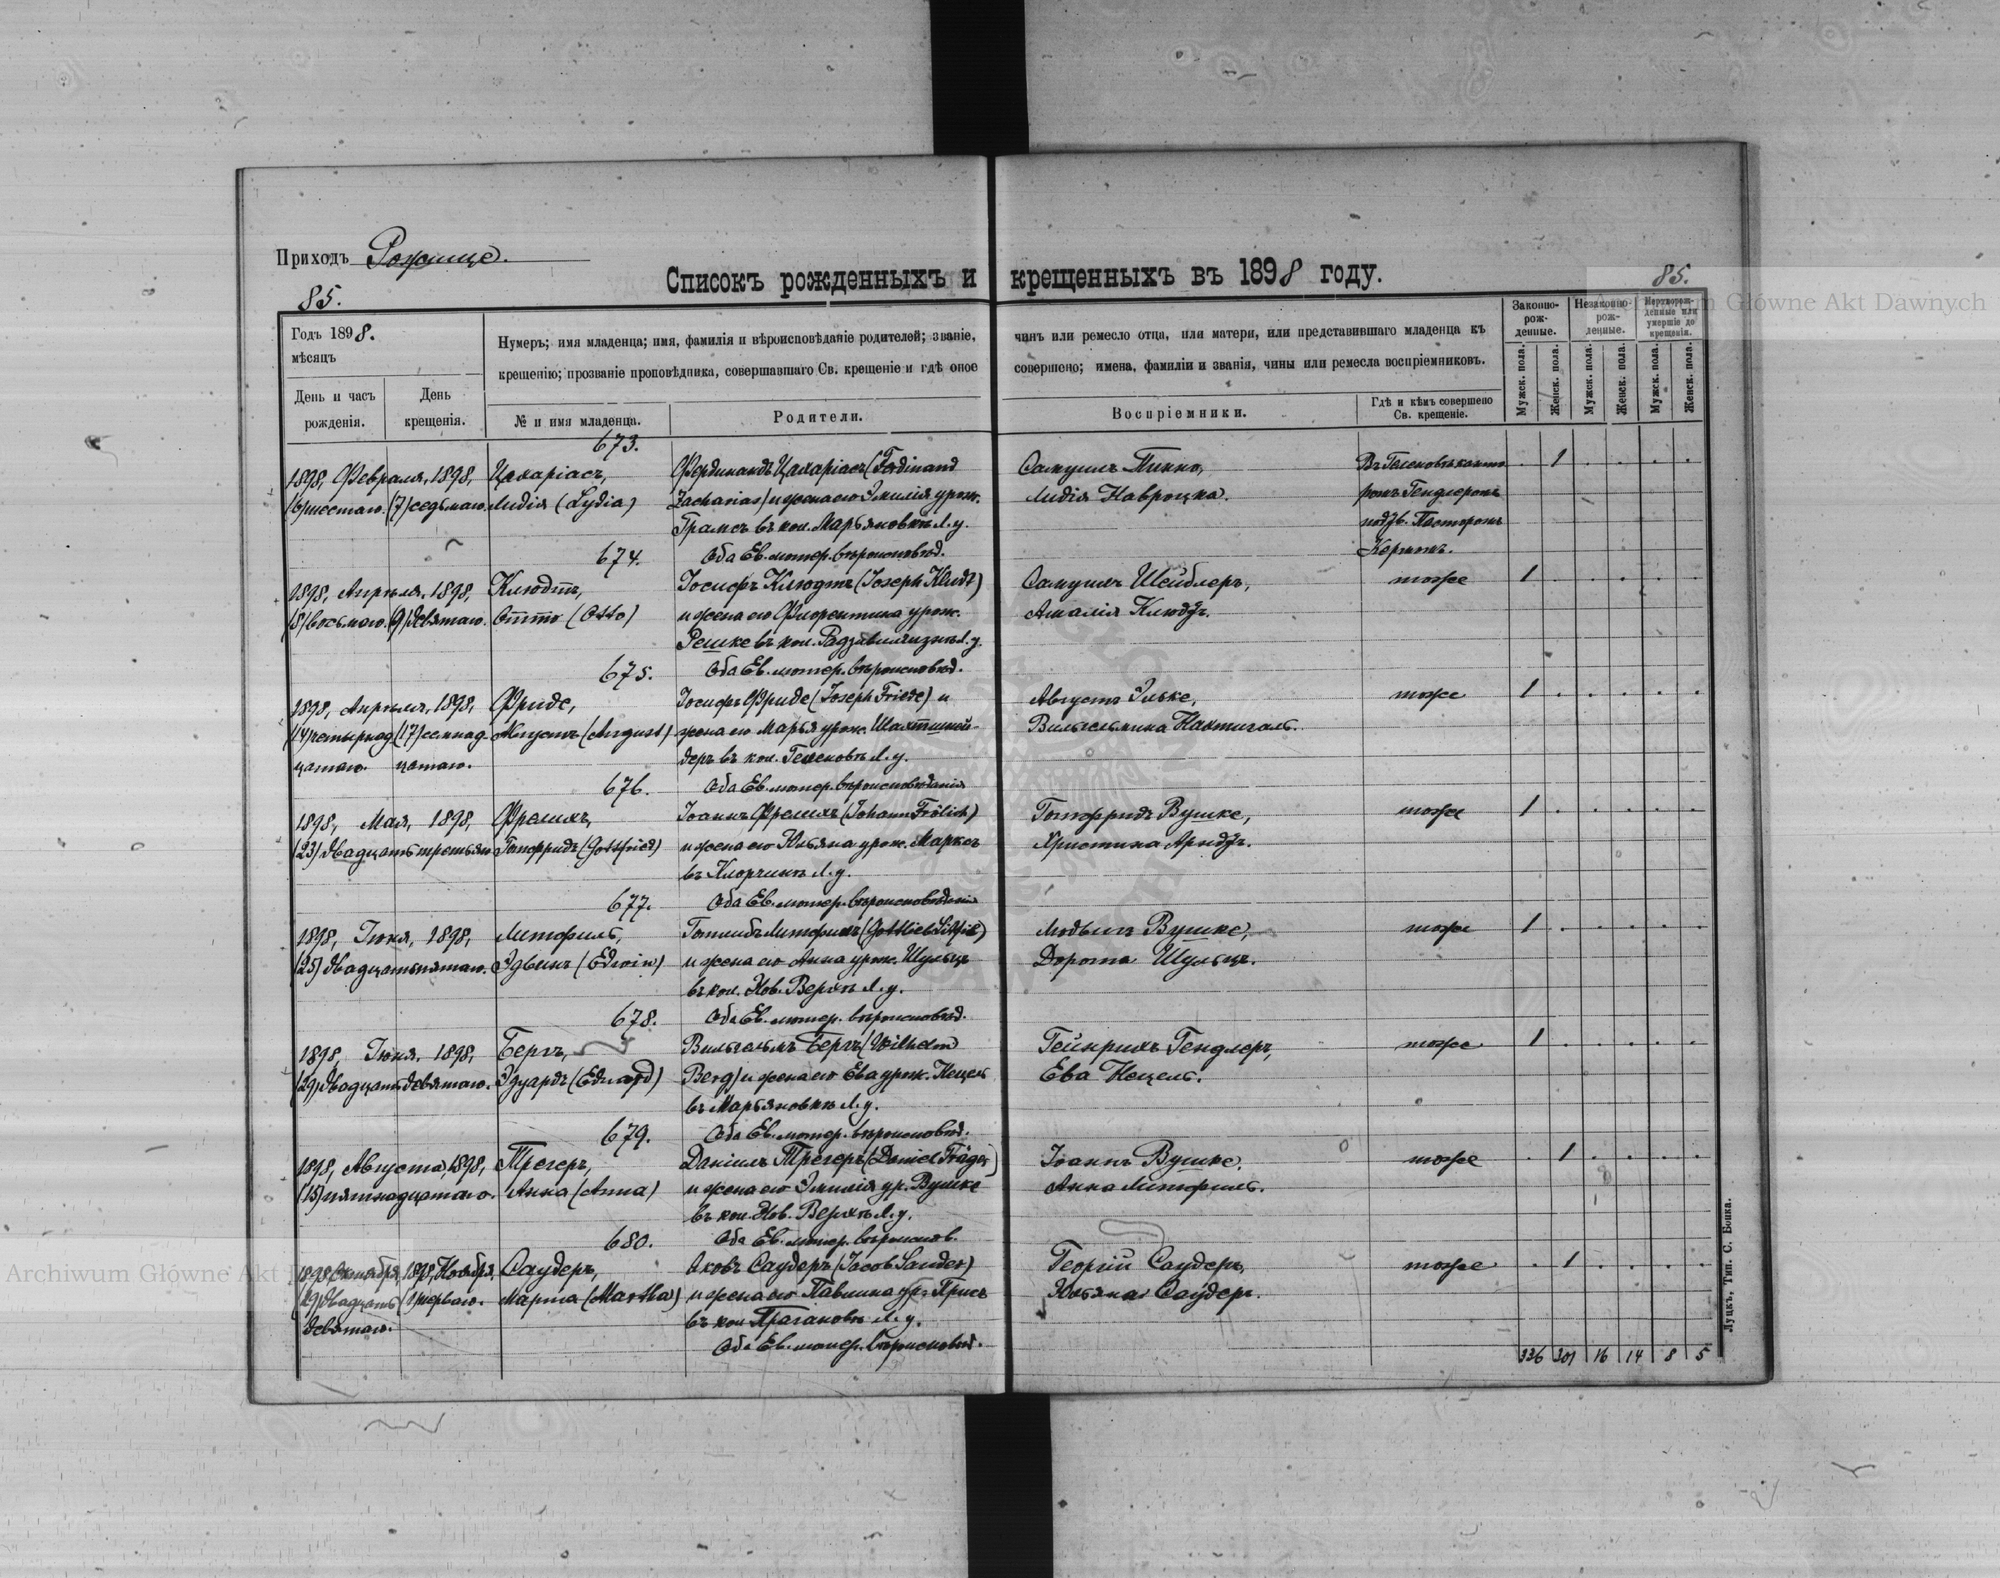 Приходъ Рожище.
Списокъ рожденныхъ и крещенныхъ въ 1898 году.
85.
85.
Archiwum Główne Akt Dawnych
Годъ 1898.
мѣсяцъ
День и часъ рожденія.
День крещенія.
Нумеръ; имя младенца; имя, фамилія и вѣроисповѣданіе родителей; званіе, чинъ или ремесло отца, или матери, или представившаго младенца къ
крещенію; прозваніе проповѣдника, совершавшаго Св. крещеніе и гдѣ оное совершено; имена, фамиліи и званія, чины или ремесла воспріемниковъ.
№ и имя младенца.
Родители.
Воспріемники.
Гдѣ и кѣмъ совершено Св. крещеніе.
Законно-рож-денные.
Незаконно-рож-денные.
Мертворож-денные или умершіе до крещенія.
Мужск. пола.
Женск. пола.
Мужск. пола.
Женск. пола.
Мужск. пола.
Женск. пола.
673.
1898, Февраля, 1898, Цахаріасъ, Фердинандъ Цахаріасъ (Ferdinand Самуилъ Пинно, 1
(6) шестаго. (7) седьмаго. Лидія (Lydia) Zacharias) и жена его Эмилія урож. Лидія Навроцка.
въ кол. Марьяновкѣ Л. у. Пасторомъ
674. Оба Ев. лютер. вѣроисповѣд.
1898, Апрѣля, 1898, Клюдтъ, Іосифъ Клюдтъ (Joseph Kludt) Самуилъ Шейблеръ, тоже 1
(8) восьмаго. (9) девятаго. Отто (Otto) и жена его Флорентина урож. Амалія Клюдтъ.
Решке въ кол. Л. у.
675. Оба Ев. лютер. вѣроисповѣд.
1898, Апрѣля, 1898, Фриде, Іосифъ Фриде (Joseph Friede) и Августъ Эльке, тоже 1
(14) четырнад (17) семнад. Августъ (August) жена его Марья урож. Вильгельмина Нахтигаль.
цатаго. цатаго. деръ въ кол. Л. у.
676. Оба Ев. лютер. вѣроисповѣданія
1898, Мая, 1898, Фрелихъ, Іоаннъ Фрелихъ (Johann Frölich) Готфридъ Вушке, тоже 1
(23) двадцать третьяго Готфридъ (Gottfried) и жена его Юльяна урож. Марксъ Христина Арндтъ.
въ Л. у.
677. Оба Ев. лютер. вѣроисповѣданія
1898, Іюня, 1898, Литфиль, Готлибъ Литфиль (Gottlieb Litfiel) Людвигъ Вушке, тоже 1
(25) двадцать пятаго. Эдвинъ (Edwin) и жена его Анна урож. Шульцъ Дорота Шульцъ.
въ кол. Нов. Верхѣ Л. у.
678. Оба Ев. лютер. вѣроисповѣд.
1898, Іюня, 1898, Бергъ, Вильгельмъ Бергъ (Wilhelm Гейнрихъ Гендлеръ, тоже 1
(29) двадцать девятаго. Эдуардъ (Eduard) Berg) и жена его Ева урож. Нецель Ева Нецель.
въ Марьяновкѣ Л. у.
679. Оба Ев. лютер. вѣроисповѣд.
1898, Августа, 1898, Трегеръ, Даніилъ Трегеръ (Daniel Träger) Іоаннъ Вушке, тоже 1
(15) пятнадцатаго. Анна (Anna) и жена его Эмилія ур. Вушке Анна Литфиль.
въ кол. Нов. Верхѣ Л. у.
680. Оба Ев. лютер. вѣроиспов.
1898, Октября, 1898, Ноября, Саудеръ, Яковъ Саудеръ (Jacob Sauder) Георгій Саудеръ, тоже 1
(29) двадцать (1) перваго. Марта (Martha) и жена его Павлина ур. Юльяна Саудеръ.
девятаго. въ кол. Л. у.
Оба Ев. лютер. вѣроисповѣд.
336 301 16 14 8 5
Луцкъ, Тип. С. Бонка.
Archiwum Główne Akt D